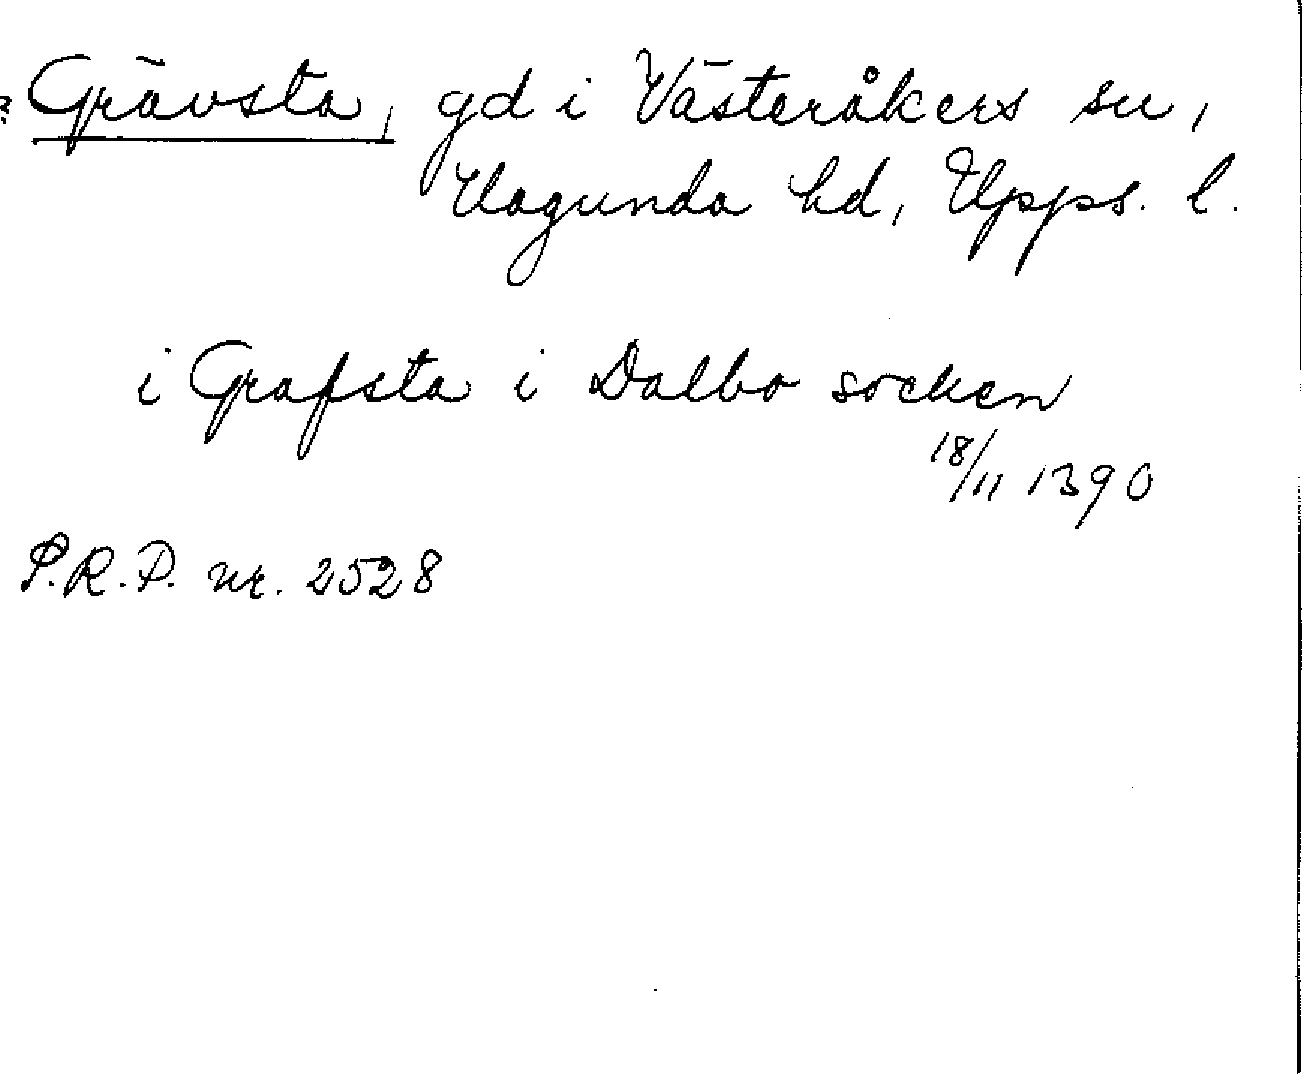 ? Grävsta, gd i Västeråkers sn,
Hagunda hd, Upps. l.
i Grafsta i Dalbo socken
18/11 1390
P.R.P. nr. 2528